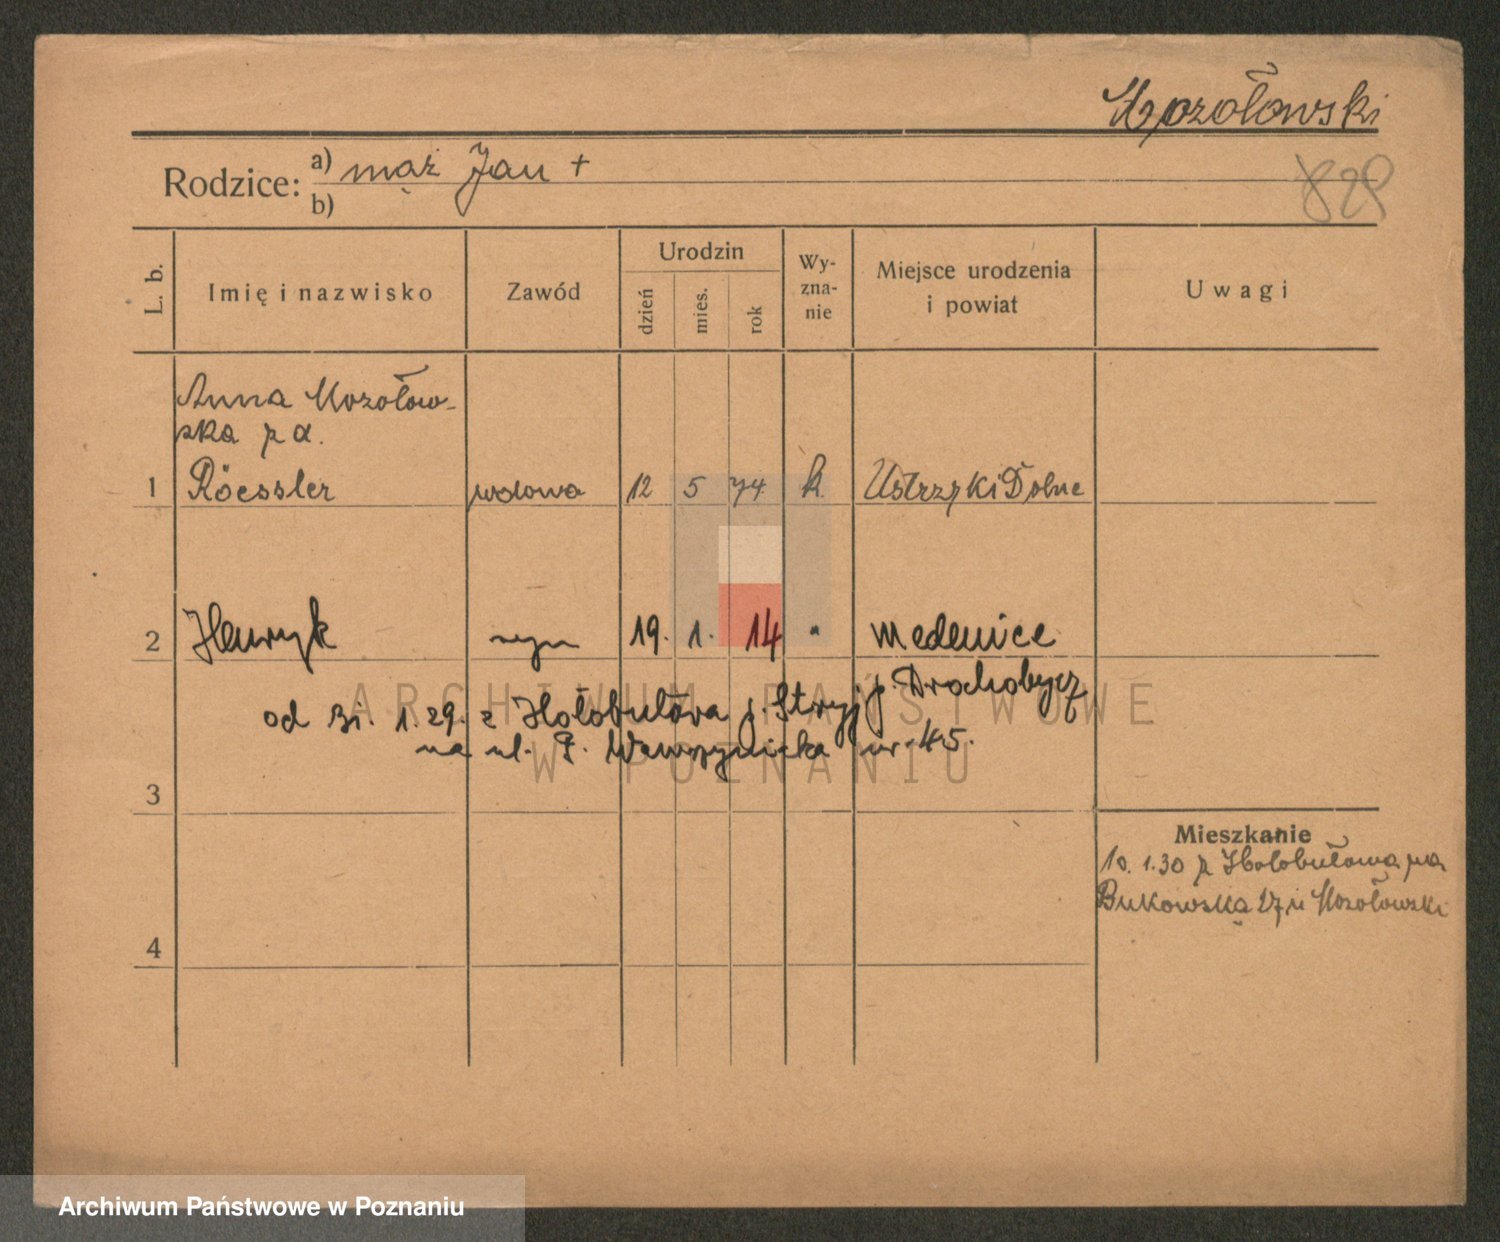 Mozołowski
Rodzice: a) mąż Jan +
b)
829
L. b.
Imię i nazwisko
Zawód
Urodzin
dzień
mies.
rok
Wy-
zna-
nie
Miejsce urodzenia
i powiat
Uwagi
Anna Mozołow-
ska z d.
1 Röessler wdowa 12 5 74 k. Ustrzyki Dolne
2 Henryk syn 19. 1. 14 " Medenice
p. Drohobycz
od 31. 1. 29. z Hołobutowa p. Stryj
na ul. Wawrzyniaka nr. 45.
3
Mieszkanie
10. 1.30 z Hołobutowa na
Bukowską 27 u Mozołowski
4
ARCHIWUM PAŃSTWOWE
W POZNANIU
Archiwum Państwowe w Poznaniu